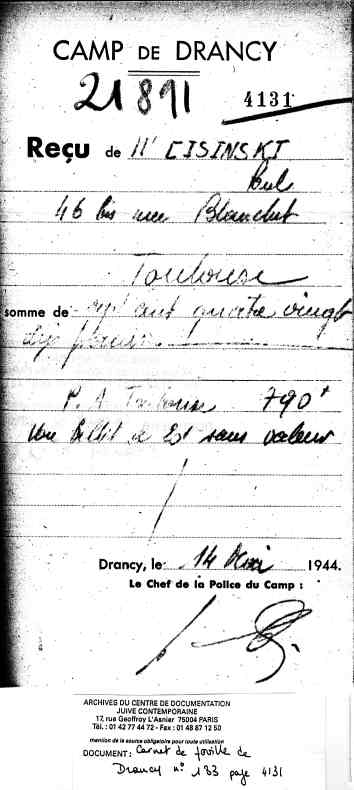 CAMP DE DRANCY
21891
4131
Reçu de Mr CISINSKI
Paul
46 bis rue Blanchet
Toulouse
somme de sept cent quatre vingt
dix francs
P. A Toulouse 790f
un billet de sans valeur
Drancy, le 14 Mai 1944.
Le Chef de la Police du Camp :
ARCHIVES DU CENTRE DE DOCUMENTATION
JUIVE CONTEMPORAINE
17, rue Geoffroy L'Asnier 75004 PARIS
Tél. : 01 42 77 44 72 - Fax : 01 48 87 12 50
mention de la source obligatoire pour toute utilisation
DOCUMENT : Carnet de fouille de
Drancy n° 133 page 4131